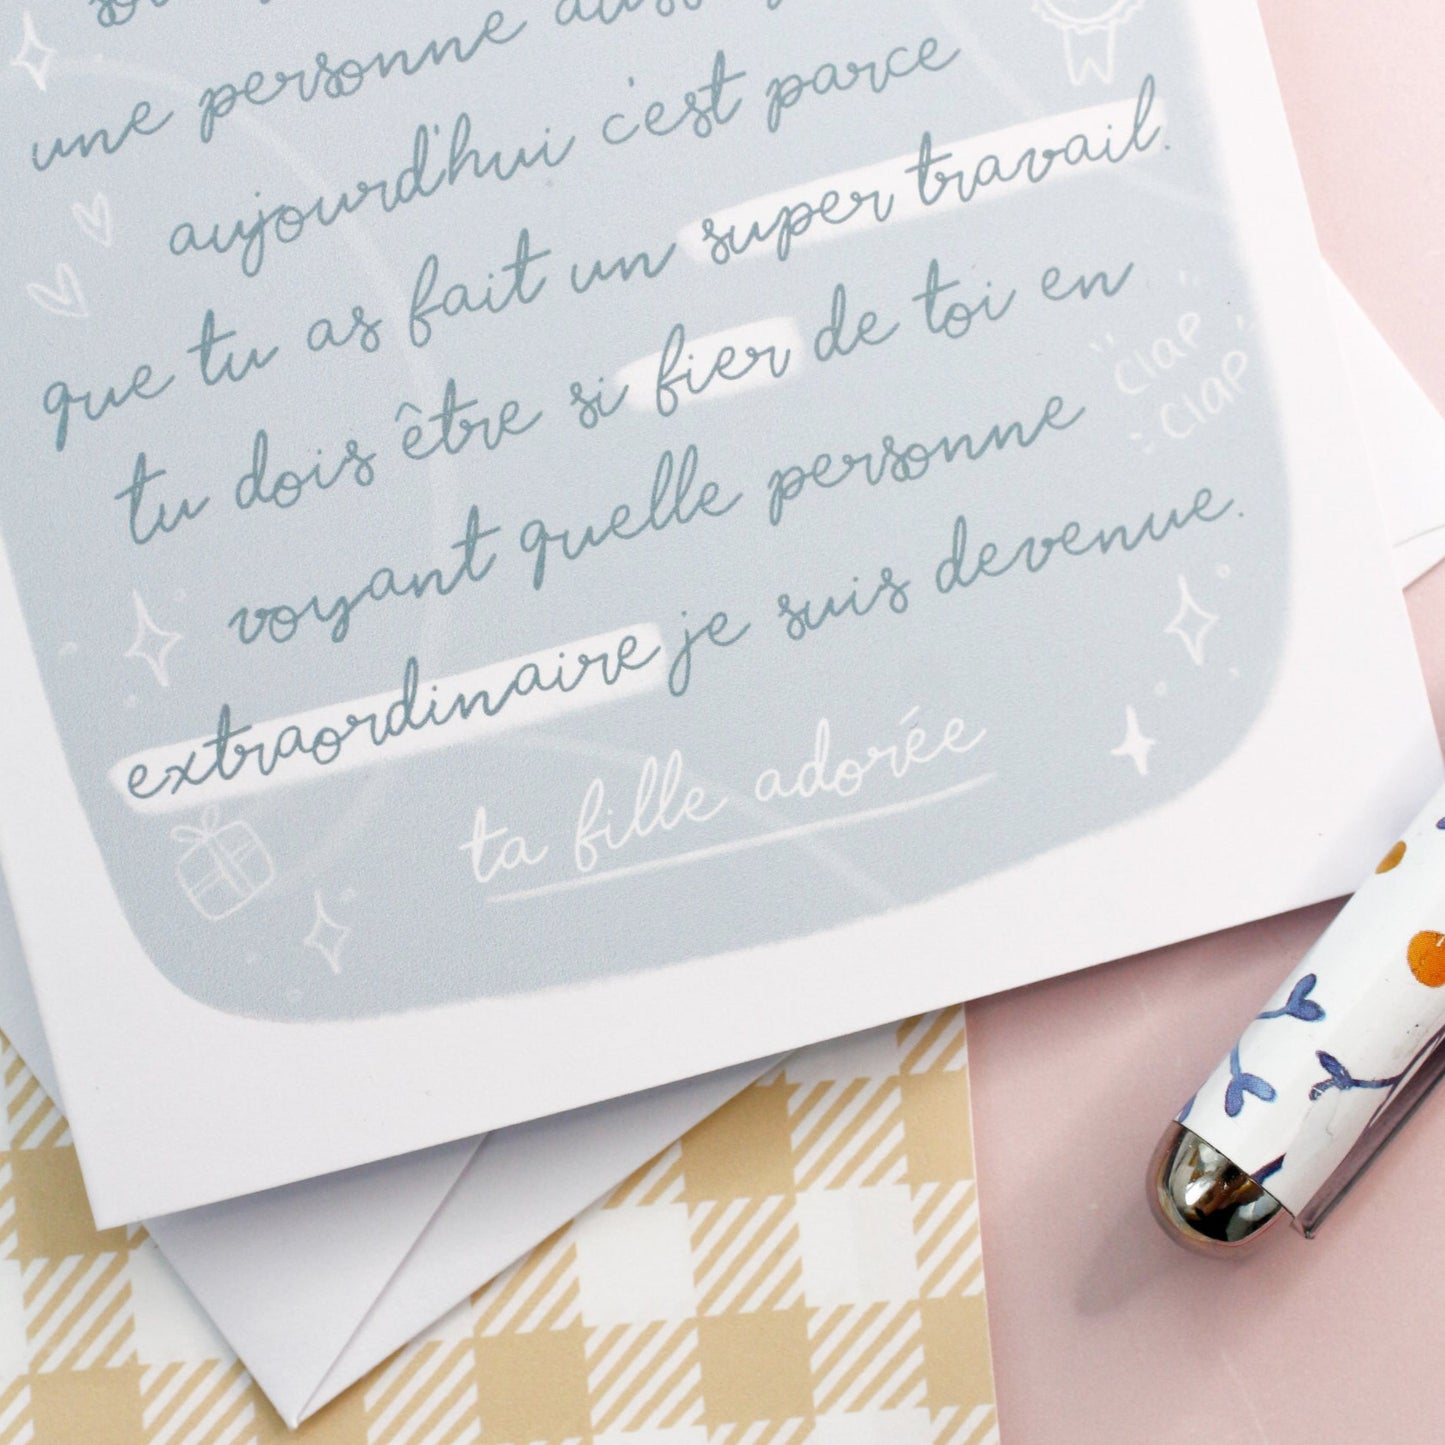 une personne
aujourd'hui c'est parce
que tu as fait un super travail.
tu dois être si fier de toi en
voyant quelle personne
extraordinaire je suis devenue.
ta fille adorée
clap
clap